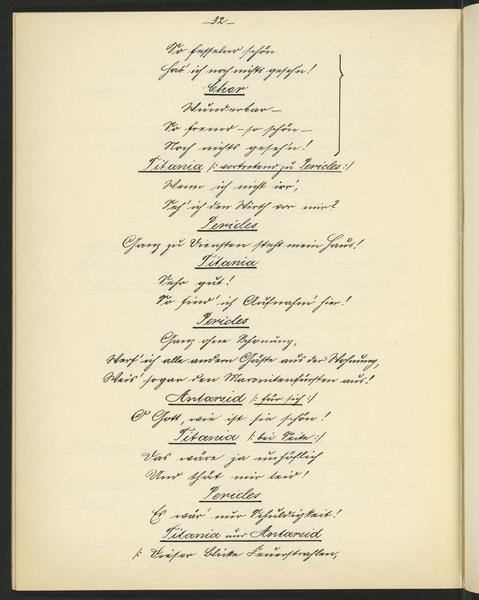 — 32 —
So fesselnd schön
Hab' ich noch nichts geseh'n!
Chor
Wunderbar —
So fremd — so schön —
Noch nichts geseh'n!
Titania /: vortretend zu Pericles :/
Wenn ich nicht irr',
Seh' ich den Wirth vor mir?
Pericles
Ganz zu Diensten steht mein Haus!
Titania
Sehr gut!
So find' ich Aufnahm' hier!
Pericles
Ganz ohne Schonung,
Werf' ich alle andern Gäste aus der Wohnung,
Weis' sogar den Maronitenfürsten aus!
Antareid /: für sich :/
O Gott, wie ist sie schön!
Titania /: bei Seite :/
Das wäre ja unhöflich
Und thät mir leid!
Pericles
Es wär' nur Schuldigkeit!
Titania und Antareid
/: Dieser Blicke Feuerstrahlen,